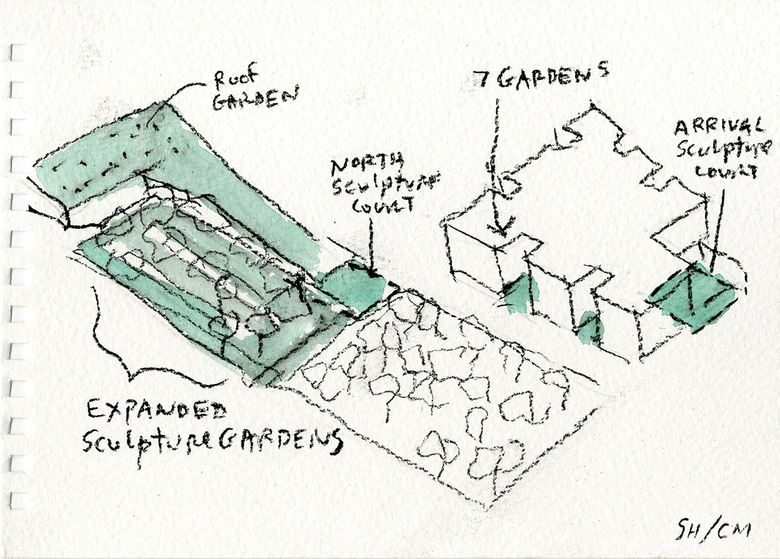 Roof
GARDEN
7 GARDENS
ARRIVAL
Sculpture
COURT
NORTH
Sculpture
COURT
EXPANDED
SculptureGARDENS
SH/CM